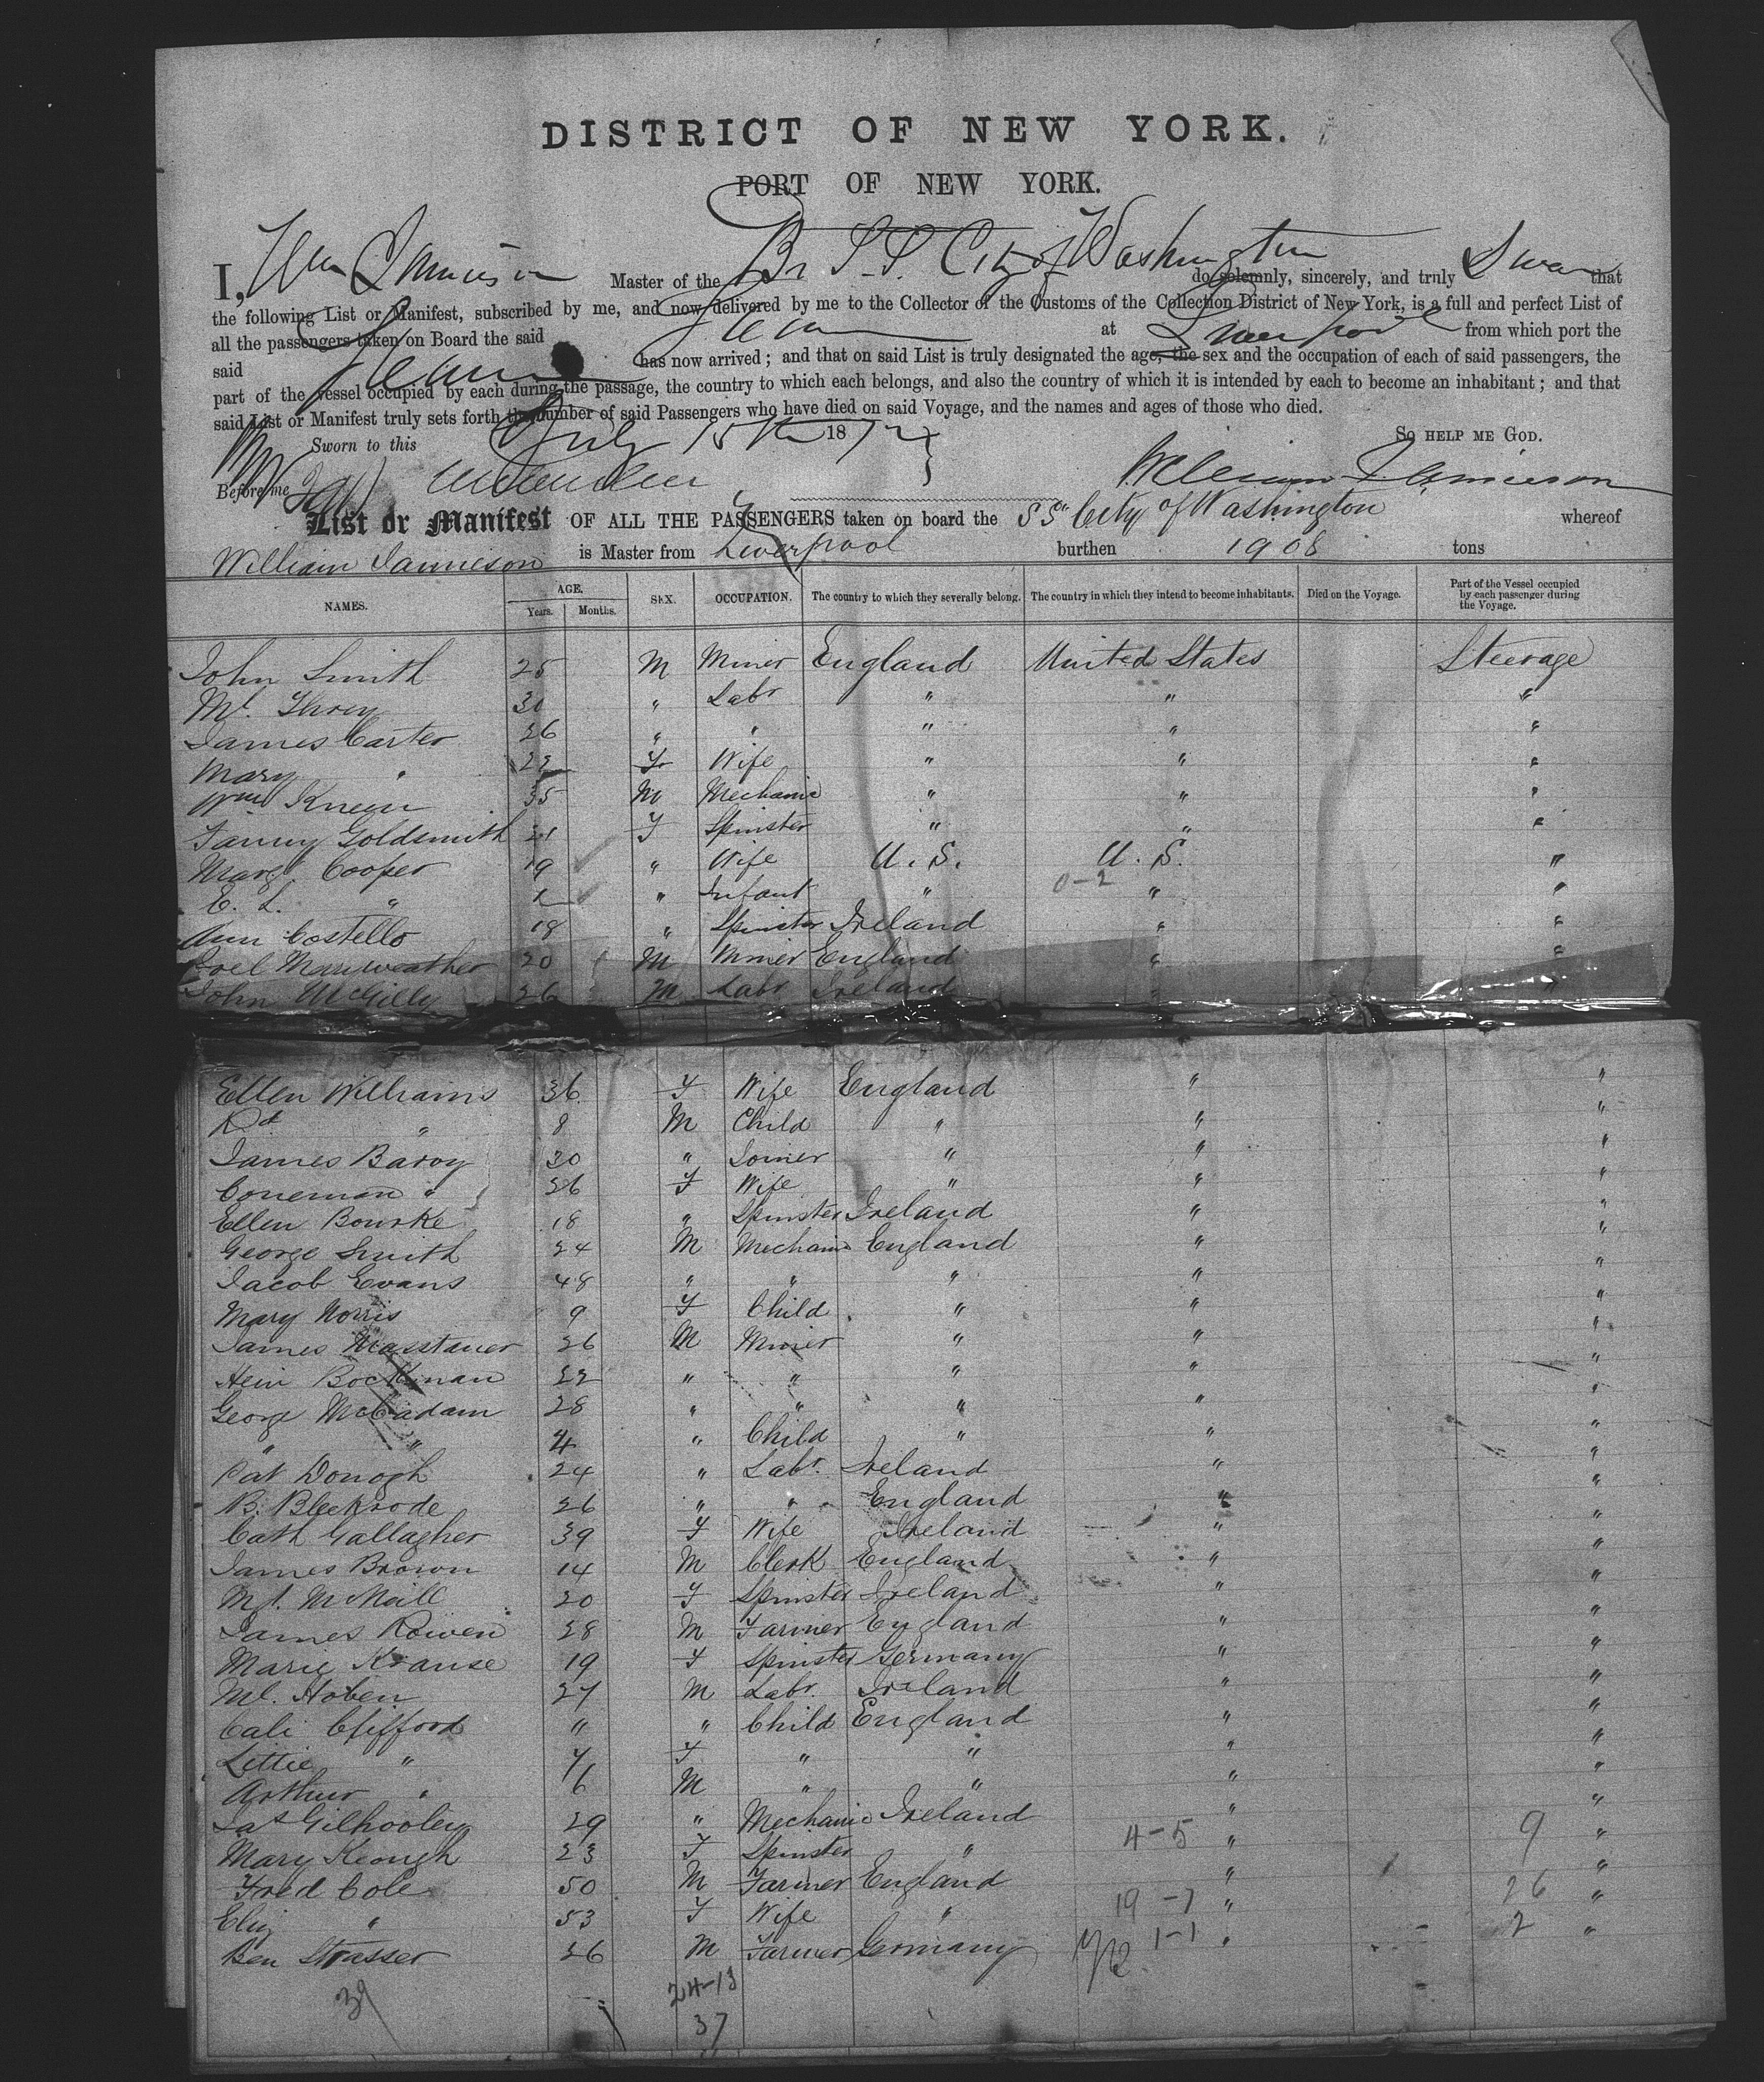 DISTRICT OF NEW YORK.
PORT OF NEW YORK.
I, Wm Jamieson Master of the Br S.S. City of Washington do solemnly, sincerely, and truly Swear that
the following List or Manifest, subscribed by me, and now delivered by me to the Collector of the Customs of the Collection District of New York, is a full and perfect List of
all the passengers taken on Board the said Steamer at Liverpool from which port the
said Steamer has now arrived; and that on said List is truly designated the age, the sex and the occupation of each of said passengers, the
part of the vessel occupied by each during the passage, the country to which each belongs, and also the country of which it is intended by each to become an inhabitant; and that
said List or Manifest truly sets forth the number of said Passengers who have died on said Voyage, and the names and ages of those who died.
Sworn to this July 15th 1872 So HELP ME GOD.
Before me William Jamieson
List or Manifest OF ALL THE PASSENGERS taken on board the SS "City of Washington whereof
William Jamieson is Master from Liverpool burthen 1908 tons
NAMES. AGE. Years. Months. SEX. OCCUPATION. The country to which they severally belong. The country in which they intend to become inhabitants. Died on the Voyage. Part of the Vessel occupied by each passenger during the Voyage.
John Smith 25 M Miner England United States Steerage
Ml. 30 " Labr " " "
James Carter 26 " " " " "
Mary " 22 F Wife " " "
Wm 35 M Mechanic " " "
Fanny Goldsmith 21 F Spinster " " "
Margt. Cooper 19 " Wife U.S. U.S. "
E. L. " 1 " Infant " 0-2 " "
Ann Costello 18 " Spinster Ireland " "
Joel Maryweather 20 M Miner England " "
John McGilly 26 M Labr Ireland " "
Ellen Williams 36 F Wife England " "
Rd " 8 M Child " " "
James Barry 30 " Joiner " " "
" 26 F Wife " " "
Ellen Bourke 18 " Spinster Ireland " "
George Smith 24 M Mechanic England " "
Jacob Evans 48 " " " " "
Mary Norris 9 F Child " " "
James 26 M Miner " " "
Hein Bockman 22 " " " " "
George McCadam 28 " " " " "
" " 4 " Child " " "
Pat Donogh 24 " Labr. Ireland " "
B. Bleekrode 26 " " England " "
Cath Gallagher 39 F Wife Ireland " "
James Brown 14 M Clerk England " "
Mt. McNaill 20 F Spinster Ireland " "
James Rowen 28 M Farmer England " "
Marie Krause 19 F Spinster Germany " "
Ml. Hoben 27 M Labr. Ireland " "
Cali Clifford " " Child England " "
Lettie " 7 F " " " "
Arthur " 6 M " " " "
Jas Gilhooley 29 " Mechanic Ireland " "
Mary Keough 23 F Spinster " 4-5 " 9 "
Fred Cole 50 M Farmer England " "
Eliz " 53 F Wife " 19-7 " 26 "
Ben Strasser 26 M Farmer Germany 1-1 " 2 "
39 24-13
37